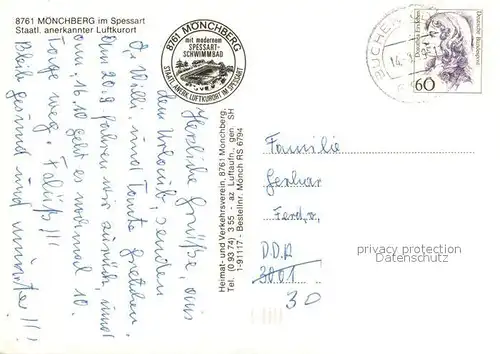 8761 MÖNCHBERG im Spessart
Staatl. anerkannter Luftkurort
8761 MÖNCHBERG
mit modernem
SPESSART-
SCHWIMMBAD
STAATL. ANERK. LUFTKURORT IM SPESSART
Herzliche Grüße, aus
dem Urlaub, senden
Willi, und Tante Gretchen.
Am 20.9. fahren wir zurück, und
am, 16.10 geht es nochmal 10.
Tage weg.
Bleibt gesund und munter!!!
Heimat- und Verkehrsverein, 8761 Mönchberg,
Tel. (0 93 74) 3 55 - az Luftaufn., gen. SH
1-91117 - Bestellnr. Mönch RS 6794
BUCHEN
Deutsche Bundespost
Dorothea Erxleben
60
Familie
Gerhar
Ferd,
DDR
3001
30
privacy protection
Datenschutz